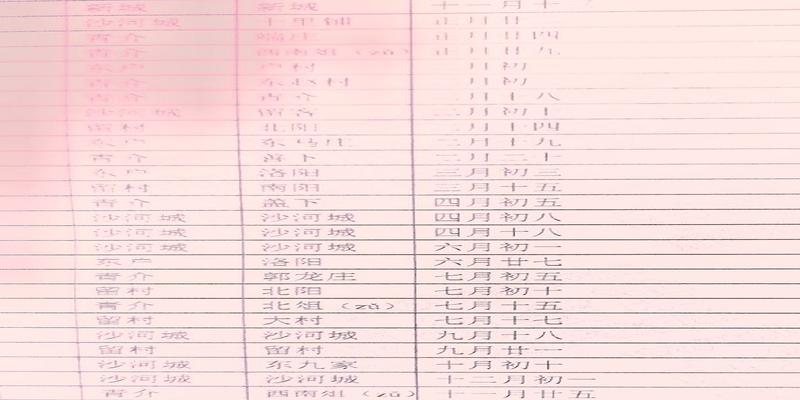 新城 新城 十一月十
沙河城 十里铺 正月廿
青介 端庄 正月廿四
青介 西南俎（zǔ） 正月廿九
东户 户村 月初
青介 东赵村 月初
青介 青介 二月十八
沙河城 留客 二月初十
留村 北阳 二月十四
东户 东马庄 二月十九
青介 高下 二月二十
东户 洛阳 三月初三
留村 南阳 三月十五
青介 盖下 四月初五
沙河城 沙河城 四月初八
沙河城 沙河城 四月十八
沙河城 沙河城 六月初一
东户 洛阳 六月廿七
青介 郭龙庄 七月初五
留村 北阳 七月初十
青介 北俎（zǔ） 七月十五
留村 大村 七月十七
沙河城 沙河城 九月十八
留村 留村 九月廿一
沙河城 东九家 十月初十
沙河城 沙河城 十二月初一
青介 西南俎（zǔ） 十一月廿五